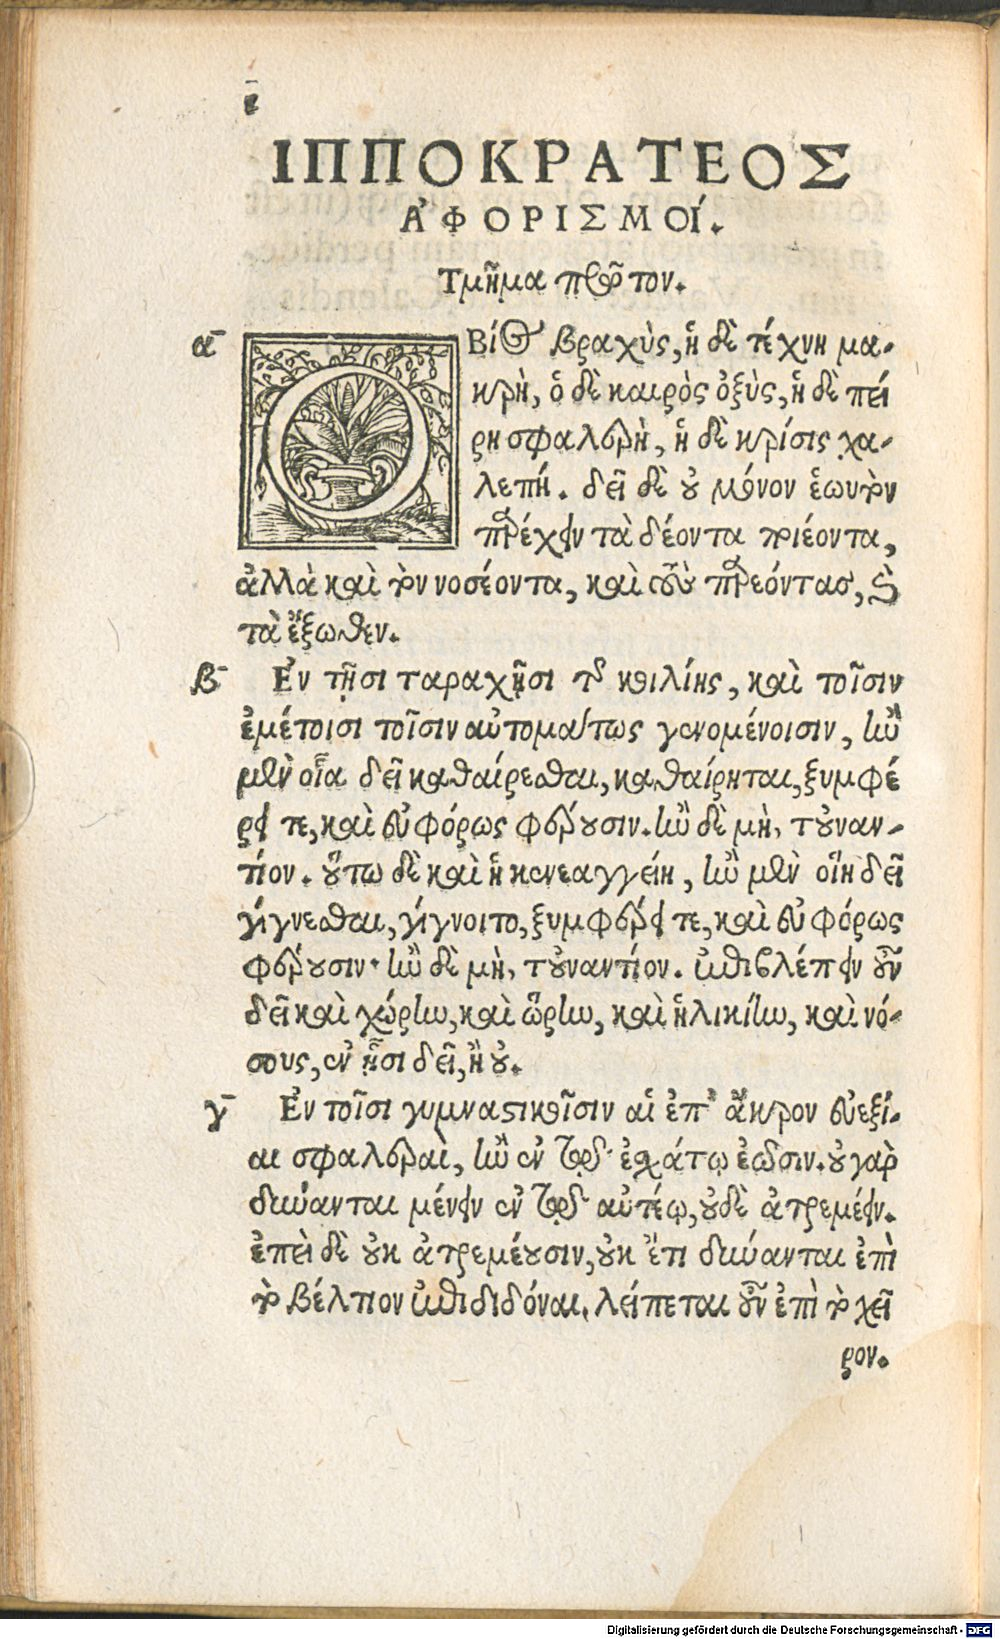 ε̄
ΙΠΠΟΚΡΑΤΕΟΣ
ἈΦΟΡΙΣΜΟΊ.
Τμῆμα πρῶτον.
ᾱ Ο ΒίΟς βραχὺς, ἡ δὲ τέχνη μα-
κρὴ, ὁ δὲ καιρὸς ὀξὺς, ἡ δὲ πεί
ρη σφαλερὴ, ἡ δὲ κρίσις χα-
λεπή. δεῖ δὲ οὐ μόνον ἑωυτὸν
παρέχειν τὰ δέοντα ποιέοντα,
ἀλλὰ καὶ τὸν νοσέοντα, καὶ τοὺς παρεόντας, καὶ
τὰ ἔξωθεν.
β̄ Ἐν τῇσι ταραχῇσι τῆς κοιλίης, καὶ τοῖσιν
ἐμέτοισι τοῖσιν αὐτομάτως γενομένοισιν, ἢν
μὲν οἷα δεῖ καθαίρεσθαι, καθαίρηται, ξυμφέ
ρει τε, καὶ εὐφόρως φέρουσιν. ἢν δὲ μὴ, τοὐναν-
τίον. οὕτω δὲ καὶ ἡ κενεαγγείη, ἢν μὲν οἵη δεῖ
γίγνεσθαι, γίγνοιτο, ξυμφέρει τε, καὶ εὐφόρως
φέρουσιν· ἢν δὲ μὴ, τοὐναντίον. ἐπιβλέπειν οὖν
δεῖ καὶ χώρην, καὶ ὥρην, καὶ ἡλικίην, καὶ νό-
σους, ἐν ᾗσι δεῖ, ἢ οὔ.
γ̄ Ἐν τοῖσι γυμναστικοῖσιν αἱ ἐπ' ἄκρον εὐεξί-
αι σφαλεραὶ, ἢν ἐν τῷ ἐσχάτῳ ἐῶσιν. οὐ γὰρ
δύνανται μένειν ἐν τῷ αὐτέῳ, οὐδὲ ἀτρεμέειν.
ἐπεὶ δὲ οὐκ ἀτρεμέουσιν, οὐκ ἔτι δύνανται ἐπὶ
τὸ βέλτιον ἐπιδιδόναι, λείπεται οὖν ἐπὶ τὸ χεῖ
ρον.
Digitalisierung gefördert durch die Deutsche Forschungsgemeinschaft - DFG